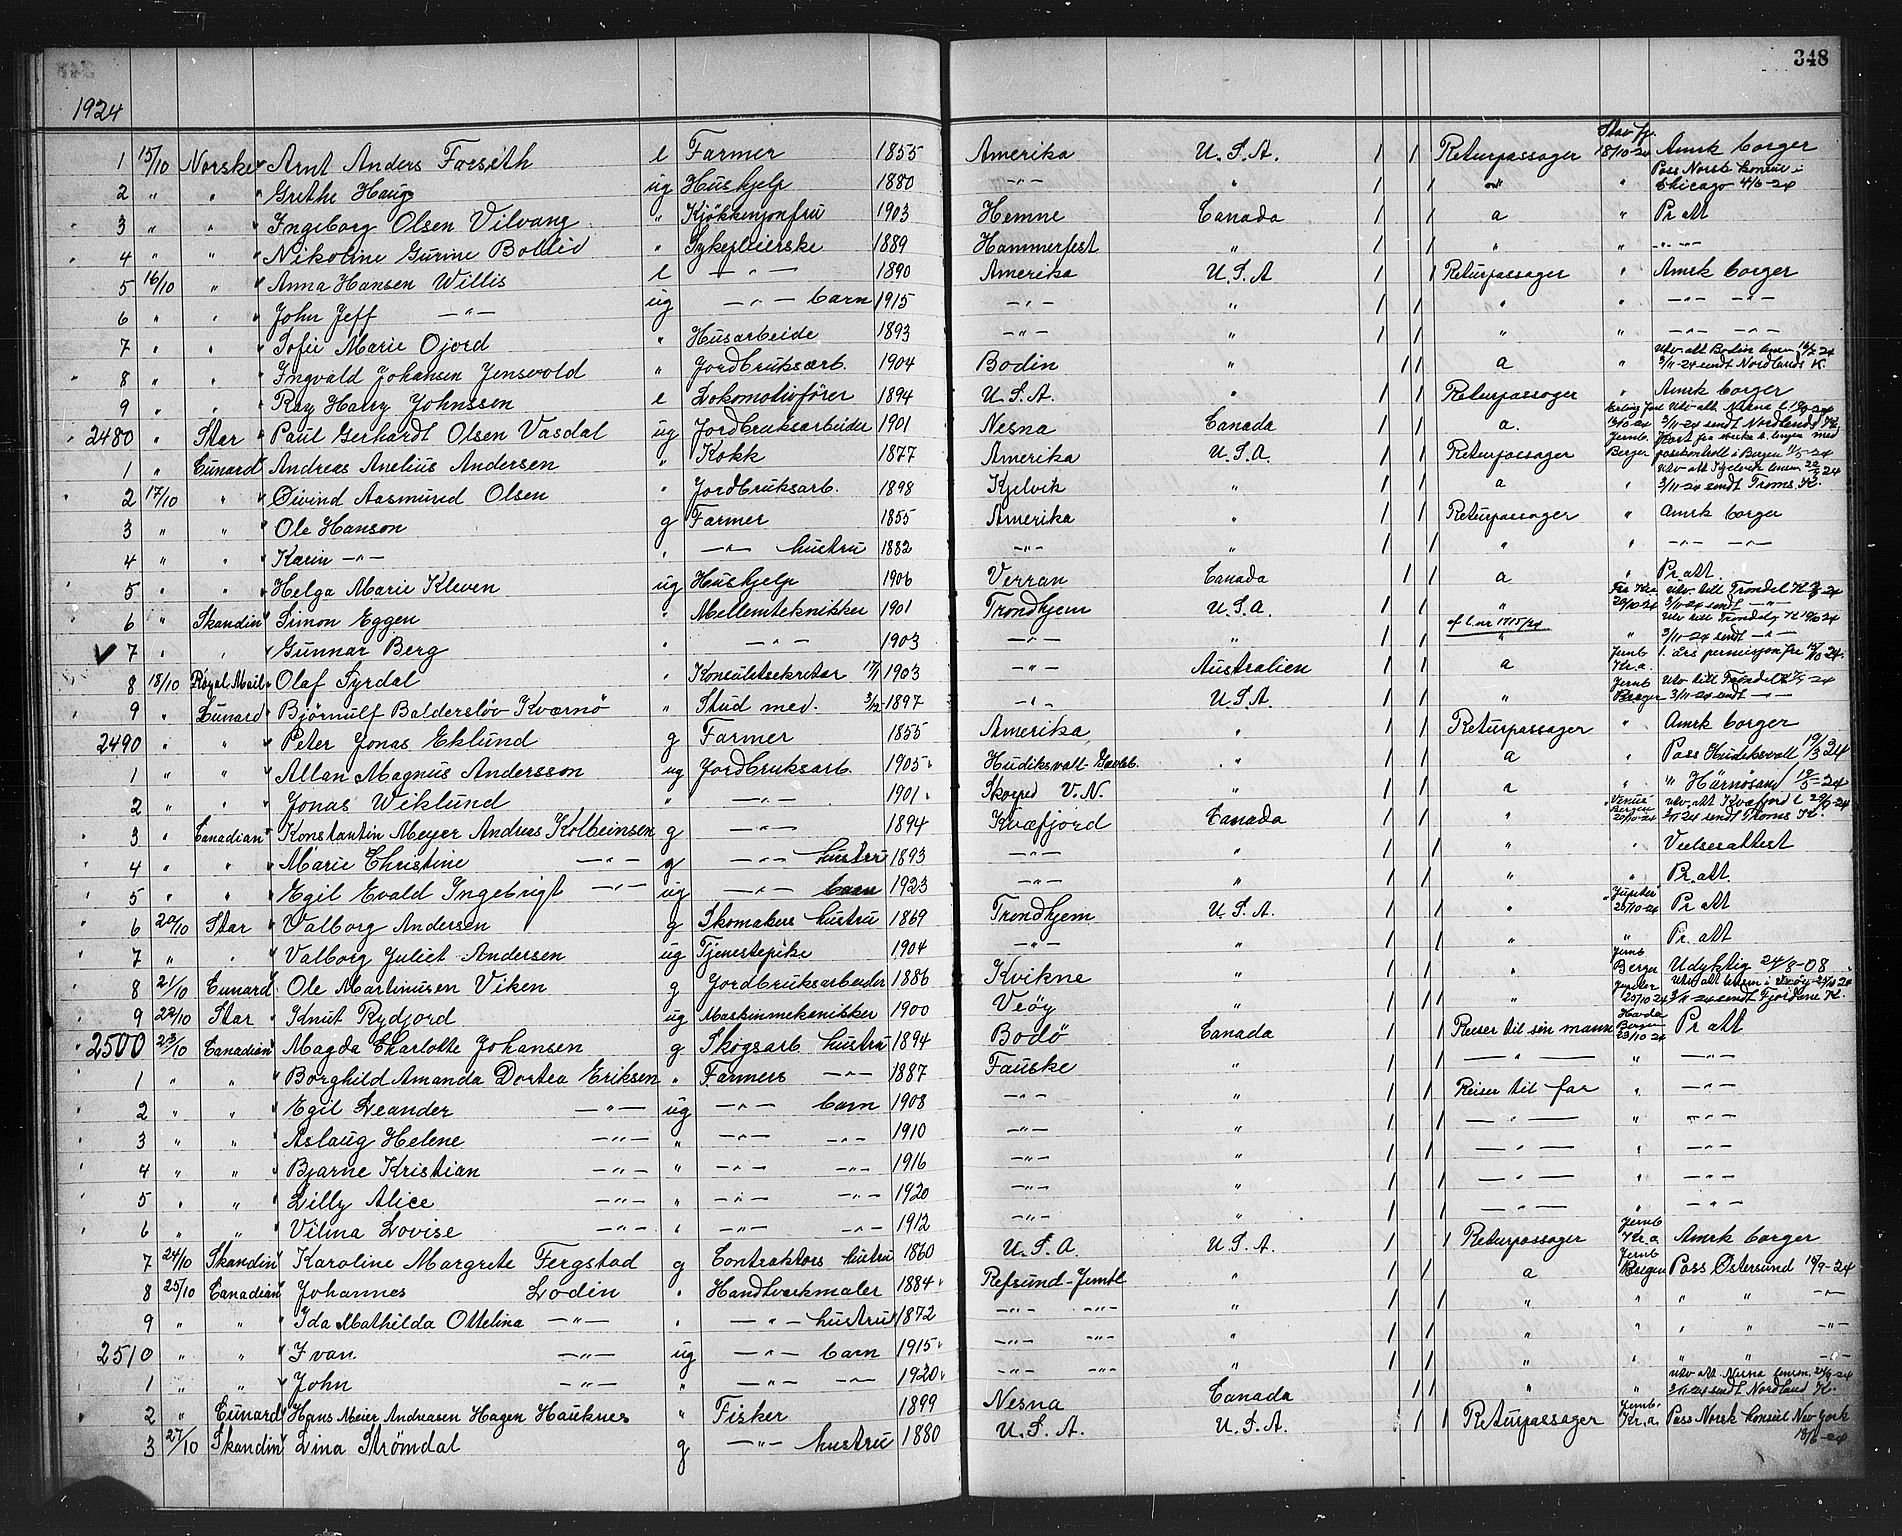 348
1924
Stav. fj.
1 15/10 Norske " Arnt Anders Forseth e Farmer 1855 Amerika U.S.A. 1 1 Returpassager 18/10-24 Amrk borger
2 " " " Grethe Haug ug Hushjelp 1880 -"- " 1 1 -"- " Pass Norsk konsul i Chicago 4/6-24
3 " " " Ingeborg Olsen Vilvang " Kjøkkenjonfru 1903 Hemne Canada 1 1 a " Pr att
4 " " " Nikoline Gurine Bollid " Sykepleierske 1889 Hammerfest " 1 1 " " -"-
5 16/10 " " Anna Hansen Willis e -"- 1890 Amerika U.S.A 1 1 Returpassager " Amrk borger
6 " " " John Jeff -"- ug -"- barn 1915 -"- " 1 1 " " -"- -"-
7 " " " Sofie Marie Ojord " Husarbeide 1893 -"- " 1 1 " " -"- -"-
8 " " " Ingvald Johansen Jensvold " Jordbruksarb. 1904 Bodin " 1 1 a " Utv. att Bodin lensm 3/11-24 sendt Nordlands K.
9 " " " Ray Harry Johnssen e Lokomotivfører 1894 U.S.A. " 1 1 Returpassager " Amrk borger
2480 " Star " Paul Gerhardt Olsen Vasdal ug Jordbruksarbeider 1901 Nesna Canada 1 1 a. Utv. att. Nesna l. 3/11-24 sendt Nordlands K
1 " Cunard " Andreas Anelius Andersen " Kokk 1877 Amerika U.S.A. 1 1 Returpassager Jernb. Bergen
2 17/10 " " Øivind Aasmund Olsen " Jordbruksarb. 1898 Kjelvik " 1 1 a " Utv att Kjelvik lensm 3/11-24 sendt Troms. K.
3 " " " Ole Hanson g Farmer 1855 Amerika " 1 1 Returpassager " Amrk borger
4 " " " Karin -"- " -"- hustru 1882 -"- " 1 1 " " -"- -"-
5 " " " Helga Marie Kleven ug Hushjelp 1906 Verran Canada 1 1 a " Pr att.
6 " Skandin " Simon Eggen " Mellemtekniker 1901 Trondhjem U.S.A. 1 1 " Fra Kra 20/10-24 3/11-24 sendt -"-
7 " " " Gunnar Berg " -"- 1903 -"- " 1 1 cf l. nr 1715/24 " 3/11-24 sendt -"-
8 18/10 Royal Mail " Olaf Syrdal " Konsulatsekretær 1903 -"- Australien 1 1 a Jernb Kr.a. 1. års permisjon fra
9 " Cunard " Bjørnulf Balderslöv Kværnö " Stud med. 3/12 1897 -"- U.S.A. 1 1 " Jernb Bergen 3/11-24 sendt -"-
2490 " " " Peter Jonas Eklund g Farmer 1855 Amerika " 1 1 Returpassager " Amrk borger
1 " " " Allan Magnus Andersson ug Jordbruksarb. 1905 Hudiksvall Gavleb. " 1 1 a " Pass Hudiksvall 19/3 24
2 " " " Jonas Wiklund " -"- 1901 Skorped V.N. " 1 1 a " " Härnösand
3 " Canadian " Konstantin Meyer Andreas Kolbeinsen g -"- 1894 Kvæfjord Canada 1 1 " "Venus" Bergen 20/10-24 utv. att Kvæfjord l 3/11 24 sendt Troms K.
4 " " " Marie Christine -"- g -"- hustru 1893 -"- " 1 1 " " Vielsesattest
5 " " " Egil Evald Ingebrigt -"- ug -"- barn 1923 -"- " 1 1 " " Pr. att
6 20/10 Star " Valborg Andersen g Skomakers hustru 1869 Trondhjem U.S.A. 1 1 " "Jupiter" 25/10-24 Pr att
7 " " " Valborg Juliet Andersen ug Tjenestepike 1904 -"- " 1 1 " " Pr. att
8 21/10 Cunard " Ole Martinusen Viken g Jordbruksarbeider 1886 Kvikne " 1 1 " Jernb Bergen Udyktig 24/8-08
9 22/10 Star " Knut Rydjord ug Maskinmekaniker 1900 Veöy " 1 1 " Jupiter 25/10 24 3/11-24 sendt Fjordane K.
2500 23/10 Canadian " Magda Charlotte Johansen g Skogsarb. hustru 1894 Bodö Canada 1 1 Reiser til sin mann Bergen 23/10-24 Pr att
1 " " " Borghild Amanda Dortea Eriksen " Farmers -"- 1887 Fauske " 1 1 -"- " -"-
2 " " " Egil Leander -"- ug -"- barn 1908 -"- " 1 1 Reiser til far " -"-
3 " " " Aslaug Helene -"- " -"- -"- 1910 -"- " 1 1 -"- " -"-
4 " " " Bjarne Kristian -"- " -"- -"- 1916 -"- " 1 1 -"- " -"-
5 " " " Lilly Alice -"- " -"- -"- 1920 -"- " 1 1 -"- " -"-
6 " " " Vilma Lovise -"- " -"- -"- 1912 -"- " 1 1 -"- " -"-
7 24/10 Skandin " Karoline Margrete Fergstad g Contraktørs hustru 1860 U.S.A. U.S.A. 1 1 Returpassager Jernb Kr.a Amrk borger
8 25/10 Canadian " Johannes Lodin " Handtverkmaler 1884 Refsund-Jemtl " 1 1 a Jernb Bergen Pass Østersund 15/9-24
9 " " " Ida Mathilda Ottelina -"- " -"- hustru 1872 -"- -"- " 1 1 " " " " -"-
2510 " " " Ivan -"- ug -"- barn 1915 -"- -"- " 1 1 " " " " -"-
1 " " " John -"- " -"- -"- 1920 -"- -"- " 1 1 " " " " -"-
2 " Cunard " Hans Meier Andreasen Hagen Hauknes " Fisker 1899 Nesna Canada 1 1 " " utv att Nesna lensm. 3/11-24 sendt Nordland K.
3 27/10 Skandin " Lina Strömdal g -"- hustru 1880 U.S.A. U.S.A. 1 1 Returpassager Jernb. Kr.a Pass Norsk konsul New York 18/6-24